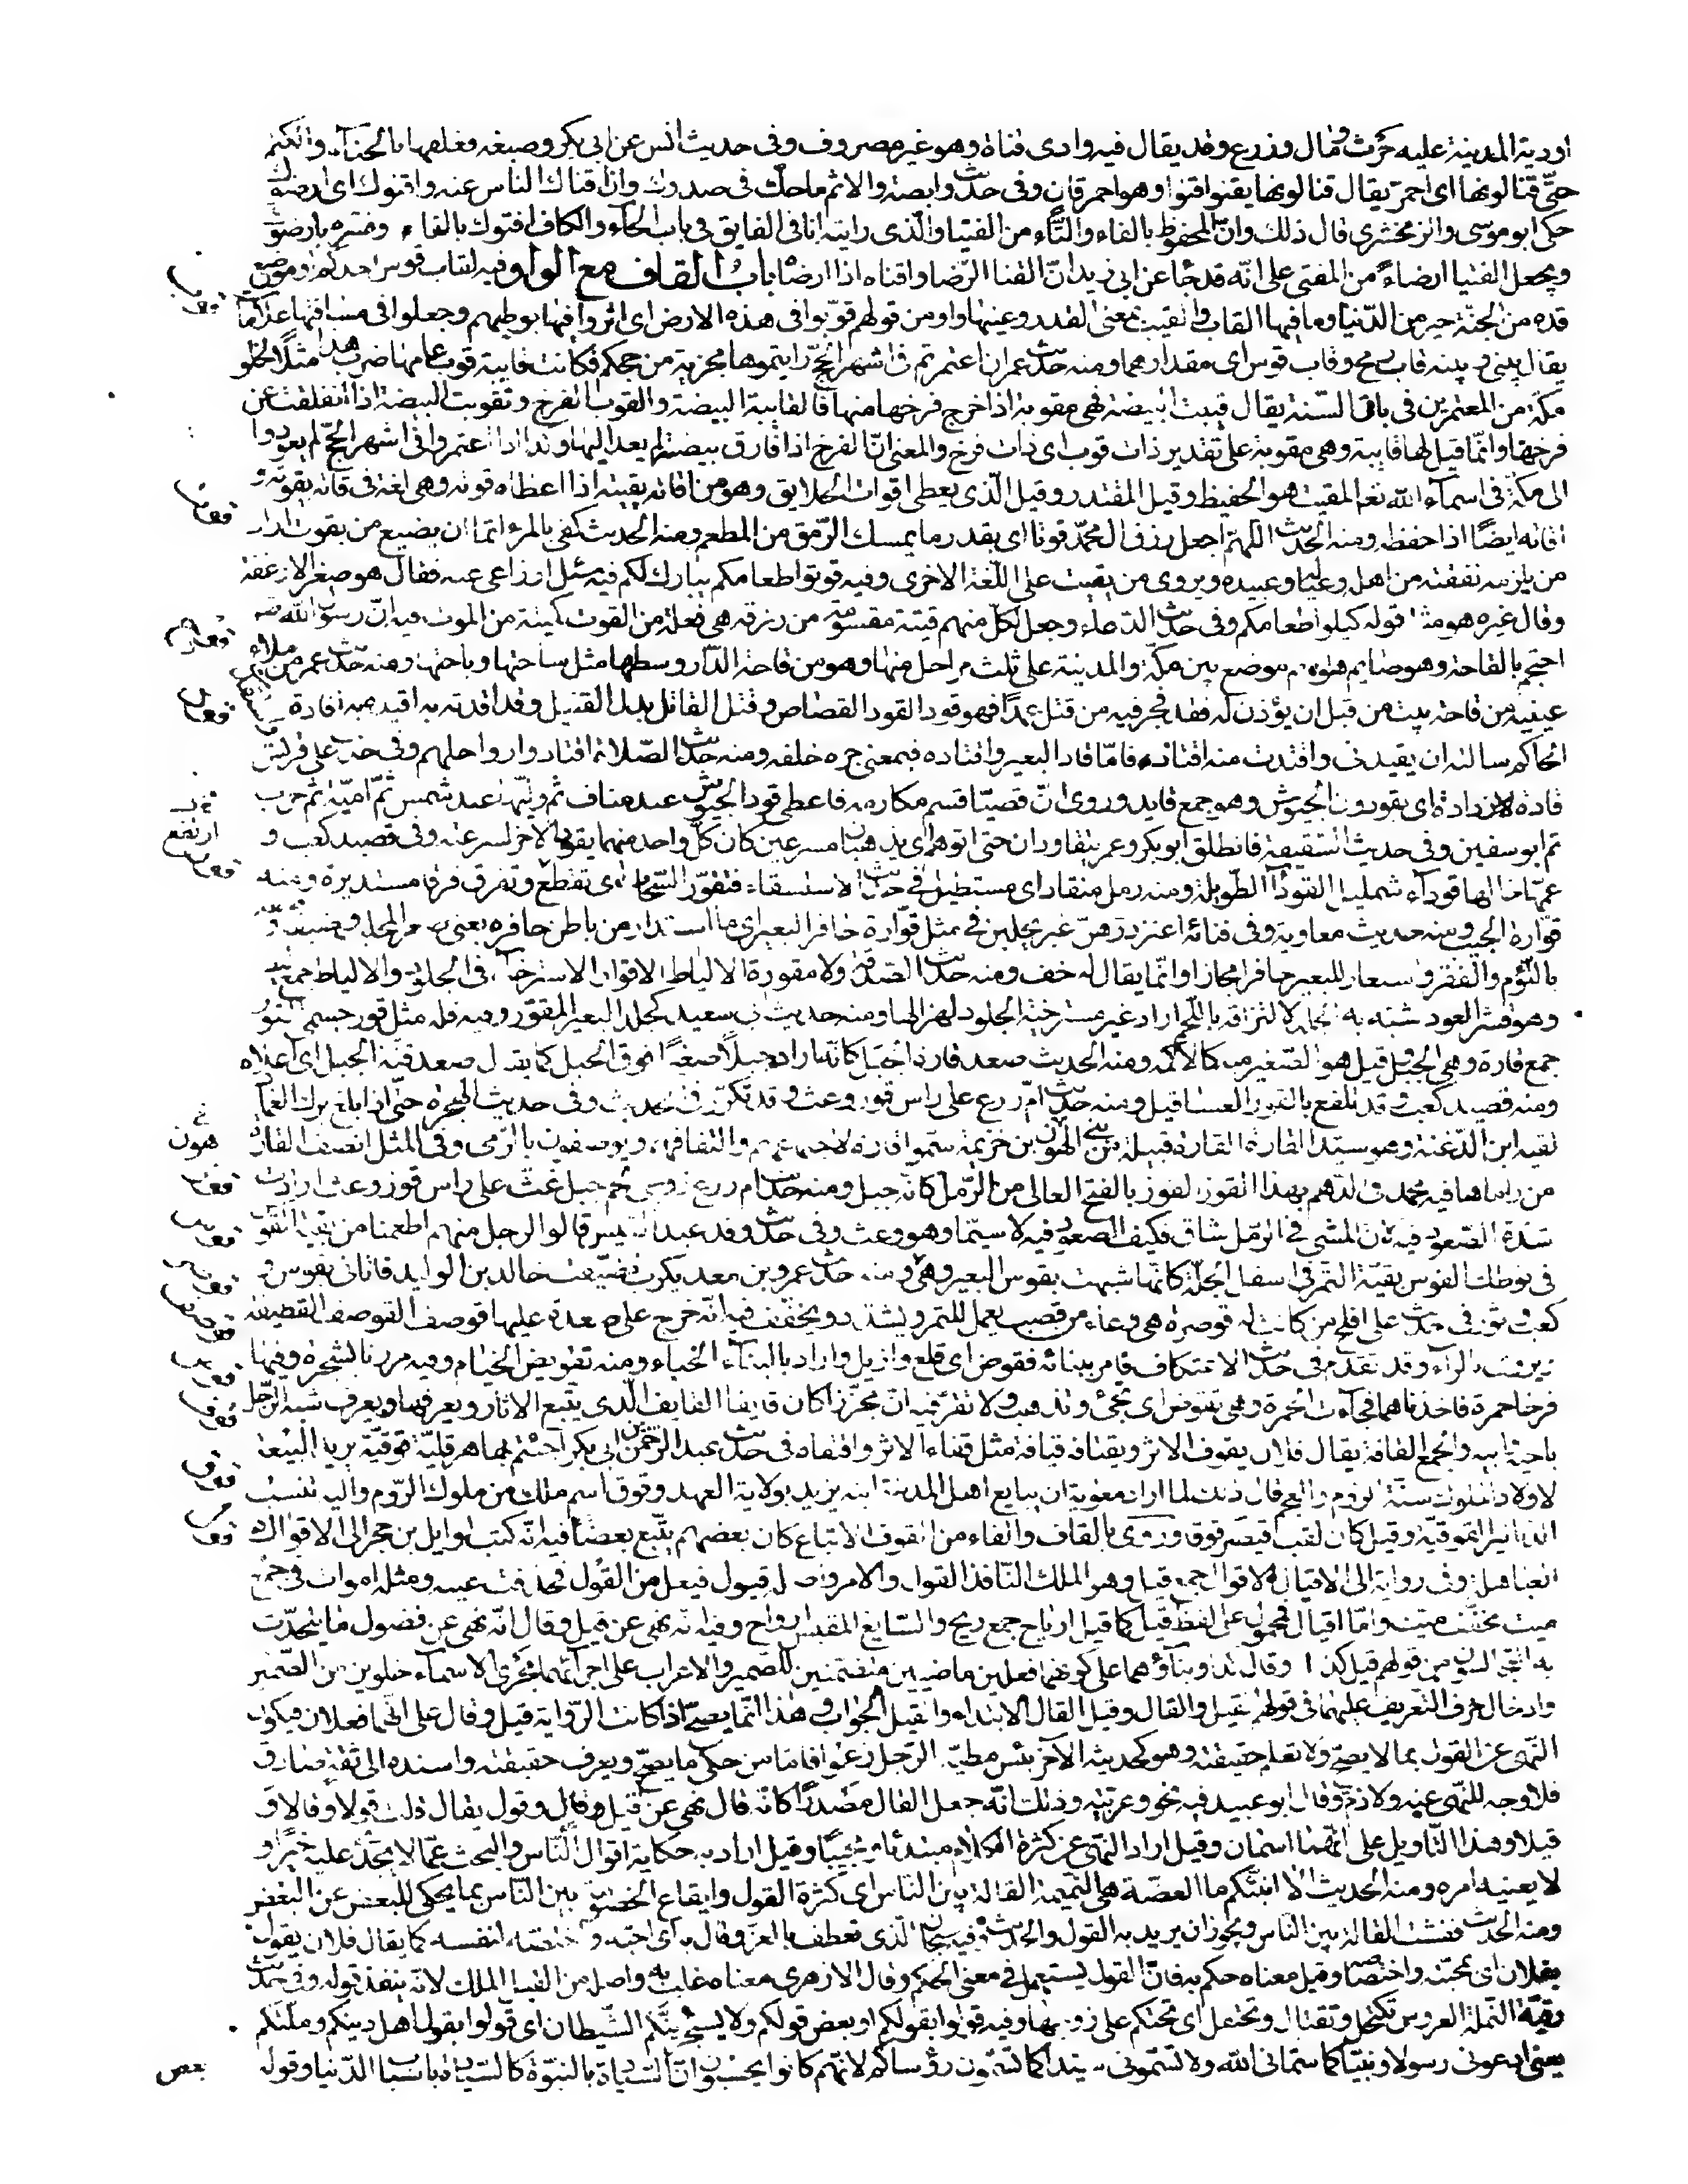 اودية المدينة عليه حرث ومال وزرع وقد يقال فيه وادى قناة وهو غير مصروف وفى حديث انس عن ابى بكر وصبغه فغلفها بالحناء والكتم
حتى قنا لونها اى احمر يقال قنا لونها يقنو اقنوا وهو احمر قان وفى حديث وابصة والاثم ما حك فى صدرك وان اقناك الناس عنه واقنوك اى ارضوك
حكى ابو موسى وان الزمخشرى قال ذلك وان المحفوظ بالفاء والتاء من الفتيا والذى رايته انا فى الفايق فى باب الحاء والكاف افتوك بالفاء وفسره بارضوك
ويجعل الفتيا ارضاء من المفتى على انه قد جاء عن ابى زيد ان القنا الرضا واقناه اذا ارضاه باب القاف مع الواو فيه لقاب قوس احدكم او موضع
قده من الجنة خير من الدنيا وما فيها القاب والقيب بمعنى القدر وعينها واو من قولهم قوبوا فى هذه الارض اى اثروا فيها بوطيهم وجعلوا فى مسافتها علامات
يقال بينى وبينه قاب رمح وقاب قوس اى مقدارهما ومنه حديث عمر ان اعتمرتم فى اشهر الحج رايتموها مجزية من حجكم فكانت قايبة قوب عامها ضرب هذا مثلا لخلو
مكة من المعتمرين فى باقى السنة يقال قيبت البيضة فهى مقوبة اذا خرج فرخها منها فالقايبة البيضة والقوب الفرخ وتقوبت البيضة اذا انفلقت عن
فرخها وانما قيل لها قايبة وهى مقوبة على تقدير ذات قوب اى ذات فرخ والمعنى ان الفرخ اذا فارق بيضته لم يعد اليها وكذا اذا اعتمروا فى اشهر الحج لم يعودوا
الى مكة فى اسماء الله تعالى المقيت هو الحفيظ وقيل المقتدر وقيل الذى يعطى اقوات الخلايق وهو من اقاته يقيته اذا اعطاه قوته وهى لغة فى قاته يقوته و
اقاته ايضا اذا حفظه ومنه الحديث اللهم اجعل رزق ال محمد قوتا اى بقدر ما يمسك الرمق من المطعم ومنه الحديث كفى بالمرء اثما ان يضيع من يقوت اراد
من يلزمه نفقته من اهله وعياله وعبيده ويروى من يقيت على اللغة الاخرى وفيه قوتوا طعامكم يبارك لكم فيه سئل الاوزاعى عنه فقال هو صغر الارغفة
وقال غيره هو مثل قوله كيلوا طعامكم وفى حديث الدعاء وجعل لكل منهم قيتة مقسومة من رزقه هى فعلة من القوت كميتة من الموت فيه ان رسول الله
احتجم بالقاحة وهو صايم هو اسم موضع بين مكة والمدينة على ثلث مراحل منها وهو من قاحة الدار وسطها مثل ساحتها وباحتها ومنه حديث عمر من ملاء
عينيه من قاحة بيت من قبل ان يؤذن له فقد فجر فيه من قتل عمدا فهو قود القود القصاص وقتل القاتل بدل القتيل وقد اقدته به اقيده اقادة
الحاكم سالته ان يقيدنى واقتدت منه اقتاد فاما قاد البعير واقتاده فبمعنى جره خلفه ومنه حديث الصلاة اقتادوا رواحلهم وفى حديث على قريش
قادة ذادة اى يقودون الجيوش وهو جمع قايد وروى ان قصيا قسم مكارمه فاعطى قود الجيوش عبد مناف ثم وليها عبد شمس ثم امية ثم حرب
ثم ابو سفين وفى حديث السقيفة فانطلق ابو بكر وعمر يتقاودان حتى اتوهم اى يذهبان مسرعين كان كل واحد منهما يقود الاخر لسرعته وفى قصيد كعب و
عمها خالها قوداء شمليل القوداء الطويلة ومنه رمل منقاد اى مستطيل فى حديث الاستسقاء فتقور السحاب اى تقطع وتفرق فرقا مستديرة ومنه
قوارة الجيب ومنه حديث معاوية وفى فنائه اعنز درهن غبر يحلبن فى مثل قوارة حافر البعير اى ما استدار من باطن حافره يعنى صغر المحلب وضيقه
باللؤم والفقر واستعار للبعير حافرا مجازا وانما يقال له خف ومنه حديث الصدقة ولا مقورة الالياط الاقورار الاسترخاء فى الجلود والالياط جمع ليط
وهو قشر العود شبه به الجلد لالتزاقه باللحم اراد غير مسترخية الجلود لهزالها ومنه حديث ابى سعيد كجلد البعير المقور وفيه فله مثل قور حسمى القور
جمع قارة وهى الجبل وقيل هو الصغير منه كالاكمة ومنه الحديث صعد قارة الجبل كانه اراد جبلا صغيرا فوق الجبل كما يقال صعد قنة الجبل اى اعلاه
ومنه قصيد كعب وقد تلفع بالقور العساقيل ومنه حديث ام زرع على راس قور وعث وقد تكرر فى الحديث وفى حديث الهجرة حتى اذا بلغ برك الغماد
لقيه ابن الدغنة وهو سيد القارة القارة قبيلة من بنى الهون بن خزيمة سموا قارة لاجتماعهم والتفافهم ويوصفون بالرمى وفى المثل انصف القارة
من راماها فيه محمد فى الدهم بهذا القوز القوز بالفتح العالى من الرمل كانه جبل ومنه حديث ام زرع زوجى لحم جمل غث على راس قوز وعث ارادت
شدة الصعود فيه لان المشى فى الرمل شاق فكيف الصعود فيه لا سيما وهو وعث وفى حديث وفد عبد القيس قالوا لرجل منهم اطعمنا من بقية القوس
فى نوطك القوس بقية التمر فى اسفل الجلة كانها شبهت بقوس البعير وهى ومنه حديث عمرو بن معد يكرب تضيفت خالد بن الوليد فاتانى بقوس و
كعب وثور فى حديث على افلح من كانت له قوصرة هى وعاء من قصب يعمل للتمر ويشدد ويخفف فيه انه خرج على صعدة عليها قوصف القوصف القطيفة
ويروى بالراء وقد تقدم فى حديث الاعتكاف فامر ببنائه فقوض اى قلع وازيل واراد بالبناء الخباء ومنه تقويض الخيام وفيه مررنا بشجرة وفيها
فرخا حمرة فاخذناهما فجاءت الحمرة وهى تقوض اى تجئ وتذهب ولا تقر فيه ان مجززا كان قايفا القايف الذى يتبع الاثار ويعرفها ويعرف شبه الرجل
باخيه وابيه والجمع القافة يقال فلان يقوف الاثر ويقتافه قيافة مثل قفاء الاثر واقتفاه فى حديث عبد الرحمن بن ابى بكر اجئتم بها هرقلية قوقية يريد البيعة
لاولاد الملوك سنة الروم والعجم قال ذلك لما اراد معوية ان يبايع اهل المدينة ابنه يزيد بولاية العهد وقوق اسم ملك من ملوك الروم واليه تنسب
الدنانير القوقية وقيل كان لقب قيصر قوقا وروى بالقاف والفاء من القوف الاتباع كان بعضهم يتبع بعضا فيه انه كتب لوايل بن حجر الى الاقوال
العباهلة وفى رواية الى الاقيال الاقوال جمع قيل وهو الملك النافذ القول والامر واصله قيول فيعل من القول فحذفت عينه ومثله اموات فى جمع
ميت مخفف ميت واما اقيال فمحمول على لفظ قيل كما قيل ارياح جمع ريح والسايغ المقيس ارواح وفيه انه نهى عن قيل وقال انه نهى عن فضول ما يتحدث
به المتجالسون من قولهم قيل كذا وقال كذا وبناؤهما على كونهما فعلين ماضيين متضمنين للضمير والاعراب على اجرائهما مجرى الاسماء خلوين من الضمير
وادخال حرف التعريف عليهما فى قولهم القيل والقال وقيل القال الابتداء والقيل الجواب وهذا انما يصح اذا كانت الرواية قيل وقال على انهما فعلان فيكون
النهى عن القول بما لا يصح ولا تعلم حقيقته وهو كحديثه الاخر بئس مطية الرجل زعموا فاما من حكى ما يصح ويعرف حقيقته واسنده الى ثقة صادق
فلا وجه للنهى عنه ولا ذم وقال ابو عبيد فيه نحو وعربية وذلك انه جعل القال مصدرا كانه قال نهى عن قيل وقال وقول يقال قلت قولا وقالا و
قيلا وهذا التاويل على انهما اسمان وقيل اراد النهى عن كثرة الكلام مبتدئا ومجيبا وقيل اراد به حكاية اقوال الناس والبحث عما لا يجدى عليه خيرا و
لا يعنيه امره ومنه الحديث الا انبئكم ما العضه هى النميمة القالة بين الناس اى كثرة القول وايقاع الخصومة بين الناس بما يحكى للبعض عن البعض
ومنه الحديث ففشت القالة بين الناس ويجوز ان يريد به القول والحديث وفيه سبحان الذى تعطف بالعز وقال به اى احبه واختصه لنفسه كما يقال فلان يقول
بفلان اى بمحبته واختصاصه وقيل معناه حكم به فان القول يستعمل فى معنى الحكم وقال الازهرى معناه غلب به واصله من القيل الملك لانه ينفذ قوله وفى حديث
رقية النملة العروس تكتحل وتقتال وتحتفل اى تحتكم على زوجها وفيه قولوا بقولكم او بعض قولكم ولا يستجرينكم الشيطان اى قولوا بقول اهل دينكم وملتكم
يعنى ادعونى رسولا ونبيا كما سمانى الله ولا تسمونى سيدا كما تسمون رؤساكم لانهم كانوا يحسبون ان السيادة بالنبوة كالسيادة باسباب الدنيا وقوله
بعض